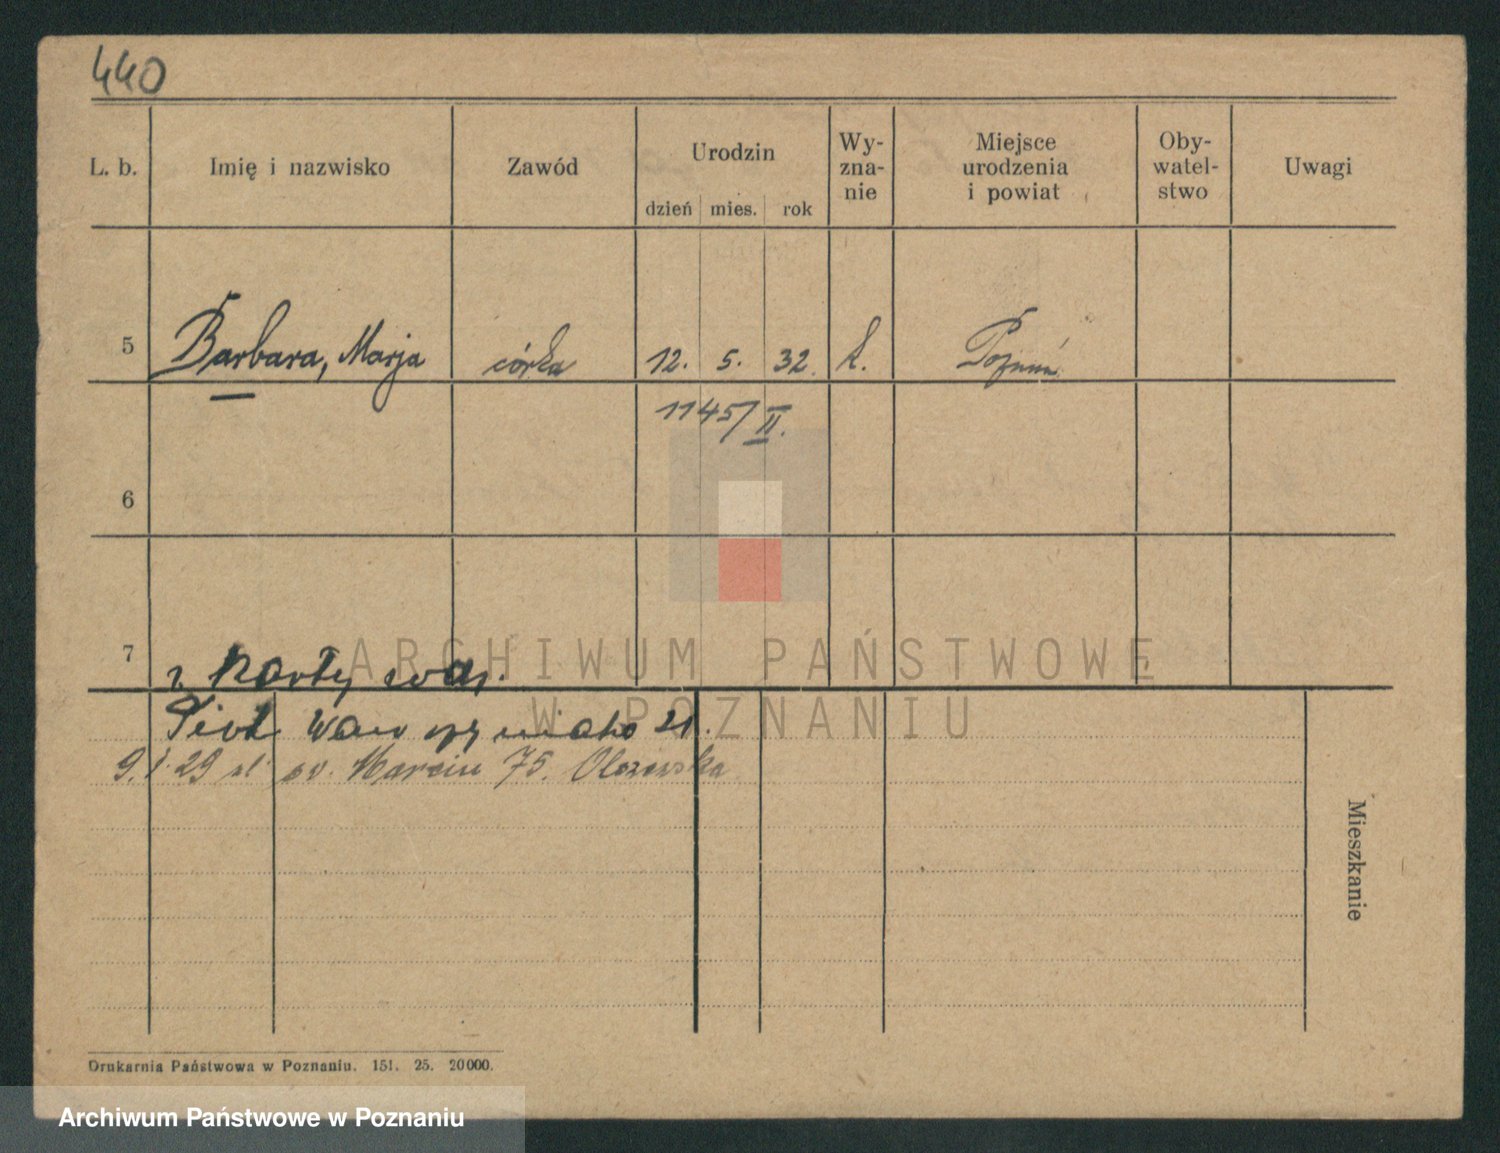 440
L. b. Imię i nazwisko Zawód Urodzin Wy-zna-nie Miejsce urodzenia i powiat Oby-watel-stwo Uwagi
dzień mies. rok
5 Barbara, Marja córka 12. 5. 32. k. Poznań
1145/II.
6
7
z karty
Piotr Wawrzyniaka 21.
9. 1 29 św. Marcin 75. Olszewska
Mieszkanie
Drukarnia Państwowa w Poznaniu. 151. 25. 20000.
ARCHIWUM PAŃSTWOWE
W POZNANIU
Archiwum Państwowe w Poznaniu